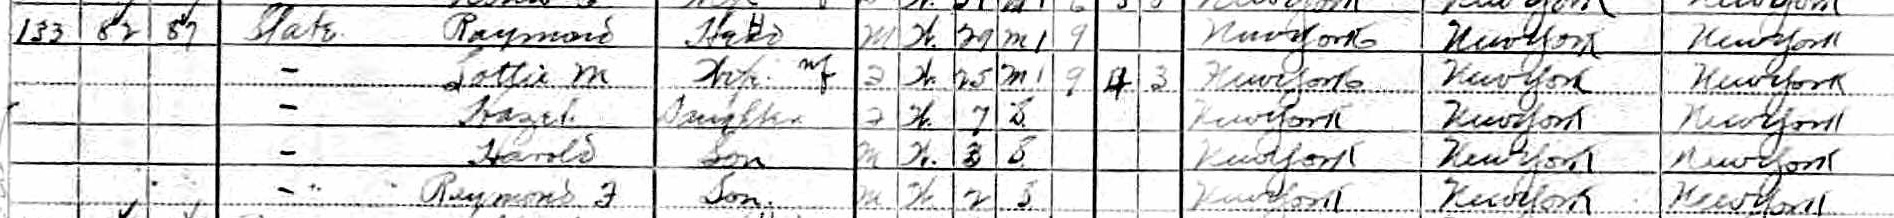 New York New York New York
133 82 87 Slate Raymond Head M W 29 M1 9 New York New York New York
— Lottie M Wife F W 25 M1 9 4 3 New York New York New York
— Hazel Daughter F W 7 S New York New York New York
— Harold Son M W 3 S New York New York New York
— " " Reymond F Son M W 2 S New York New York New York